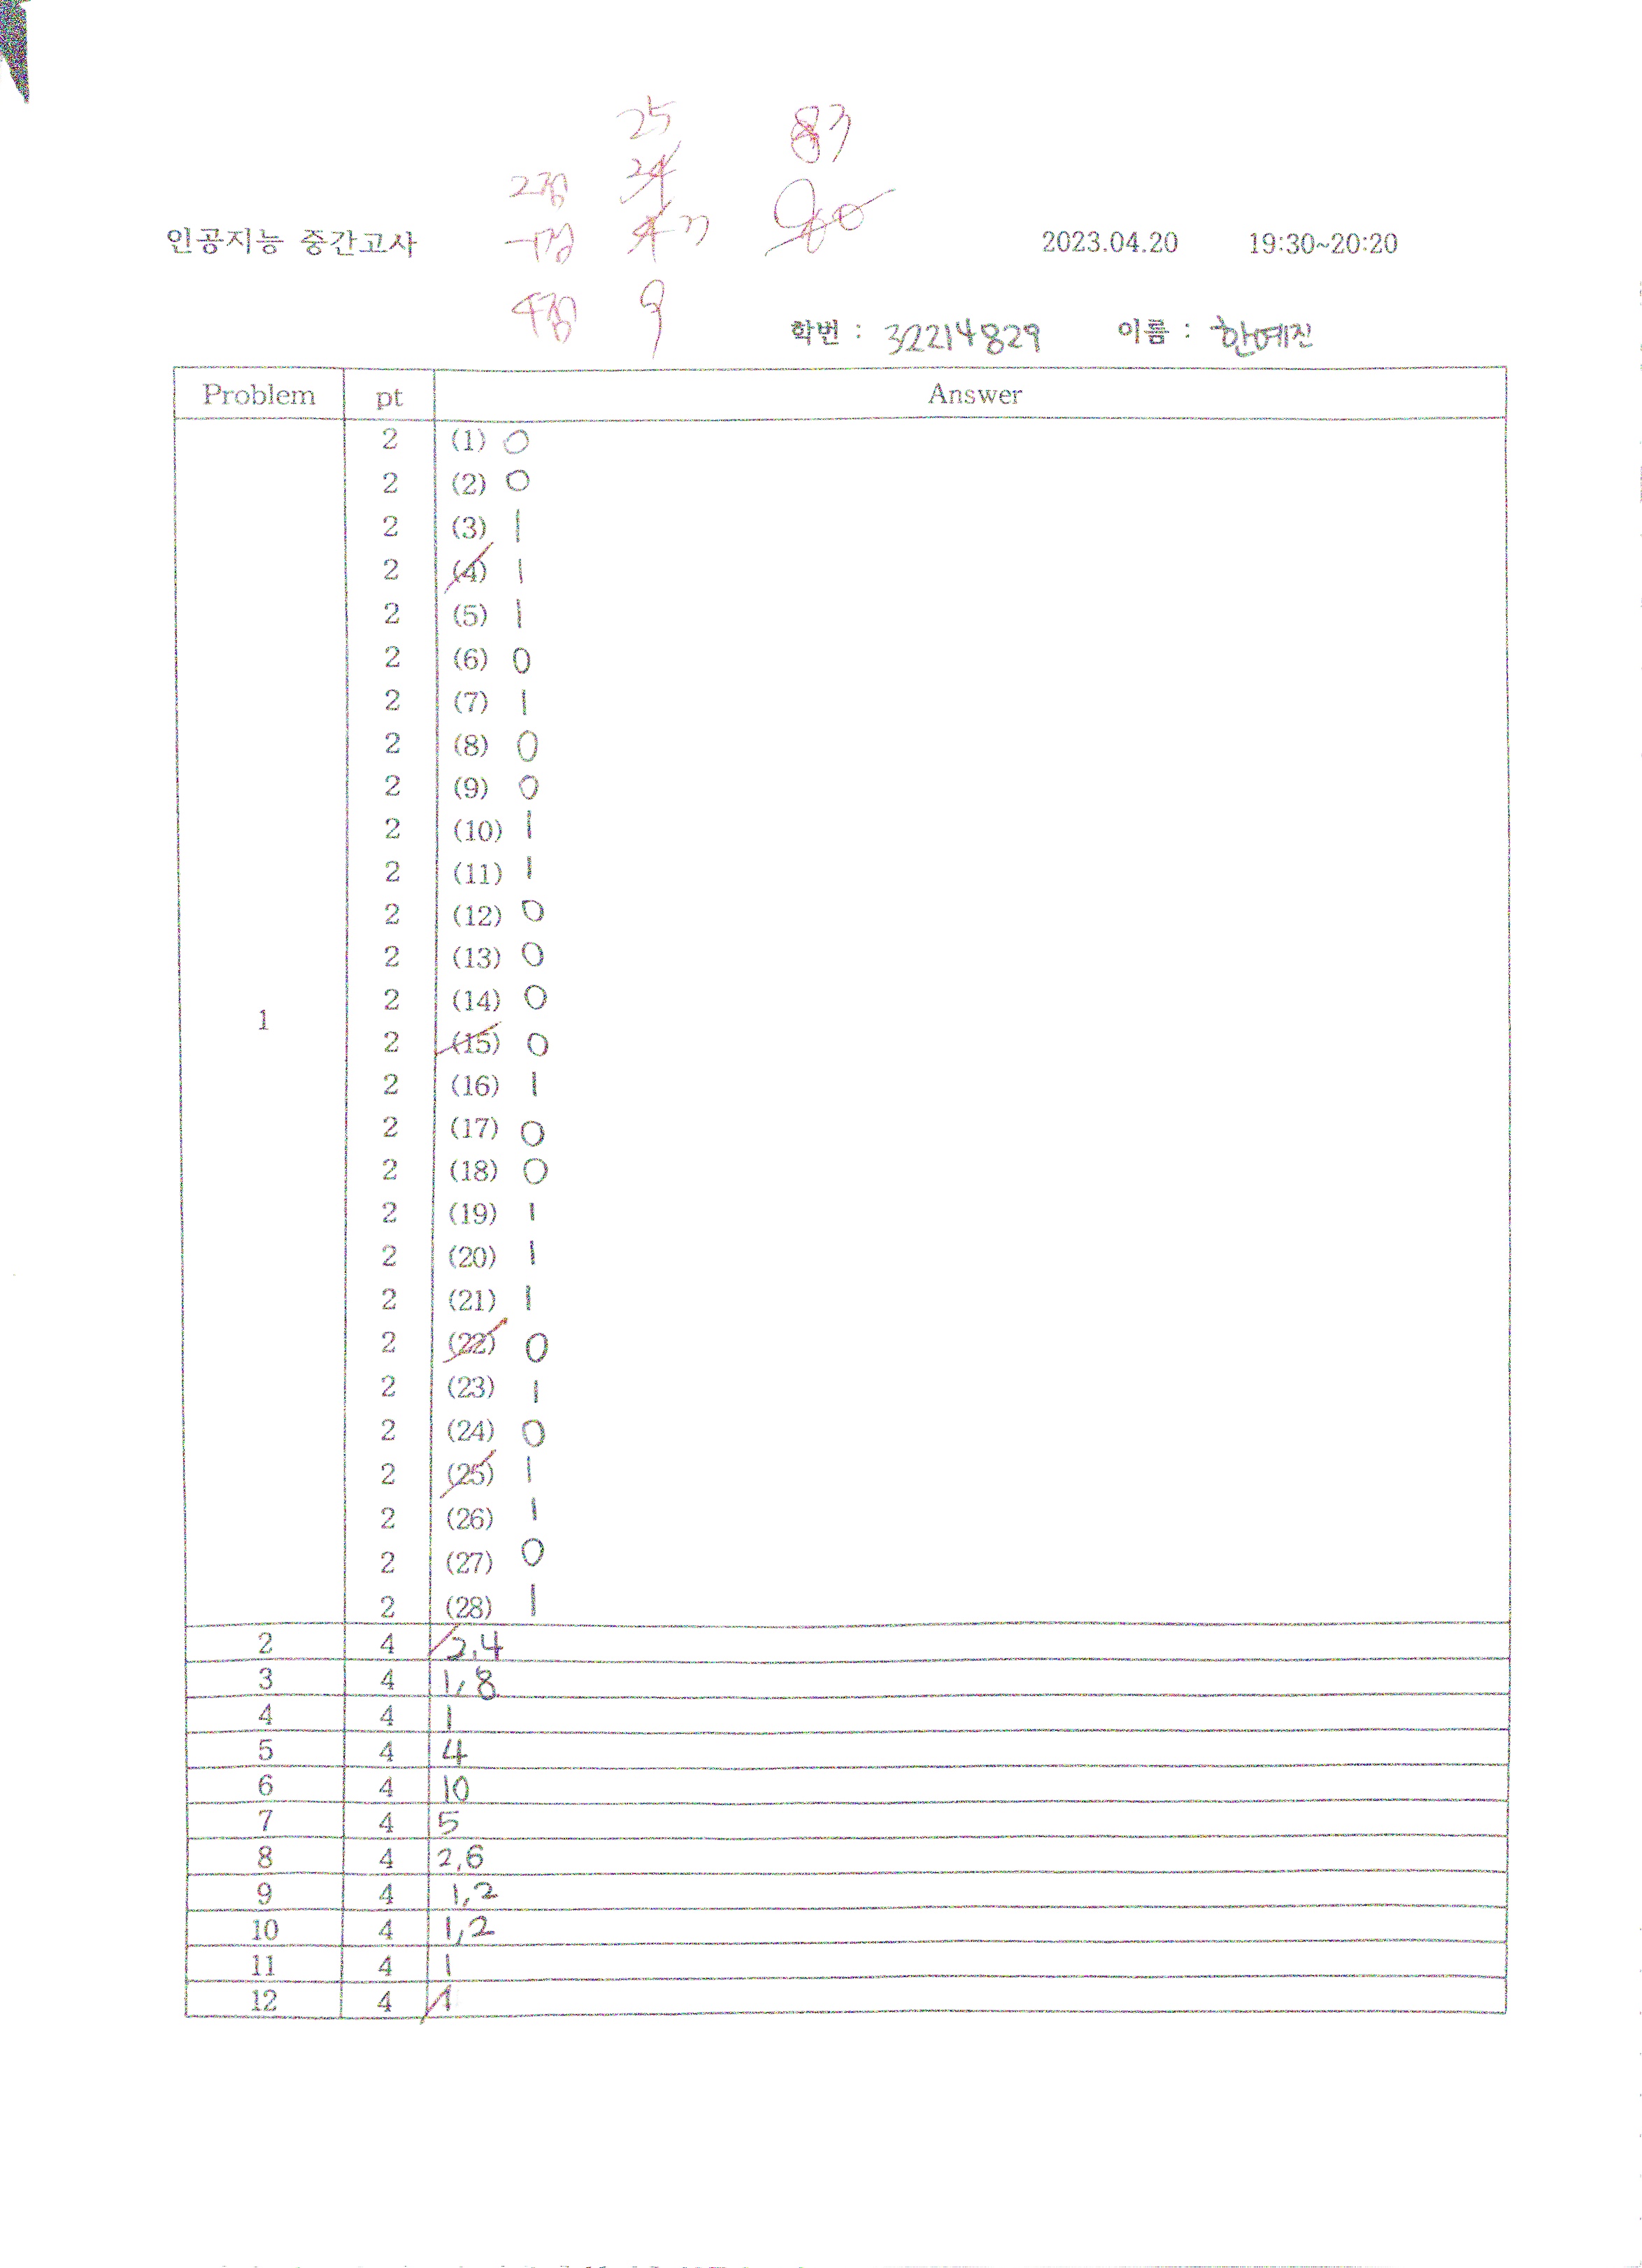 25 83
2점 24
인공지능 중간고사 -1점 2023.04.20 19:30~20:20
4점 9
학번 : 32214829 이름 : 한예진
Problem pt Answer
2 (1) 0
2 (2) 0
2 (3) 1
2 (4) 1
2 (5) 1
2 (6) 0
2 (7) 1
2 (8) 0
2 (9) 0
2 (10) 1
2 (11) 1
2 (12) 0
2 (13) 0
2 (14) 0
1
2 (15) 0
2 (16) 1
2 (17) 0
2 (18) 0
2 (19) 1
2 (20) 1
2 (21) 1
2 (22) 0
2 (23) 1
2 (24) 0
2 (25) 1
2 (26) 1
2 (27) 0
2 (28) 1
2 4 2,4
3 4 1,8
4 4 1
5 4 4
6 4 10
7 4 5
8 4 2,6
9 4 1,2
10 4 1,2
11 4 1
12 4 1